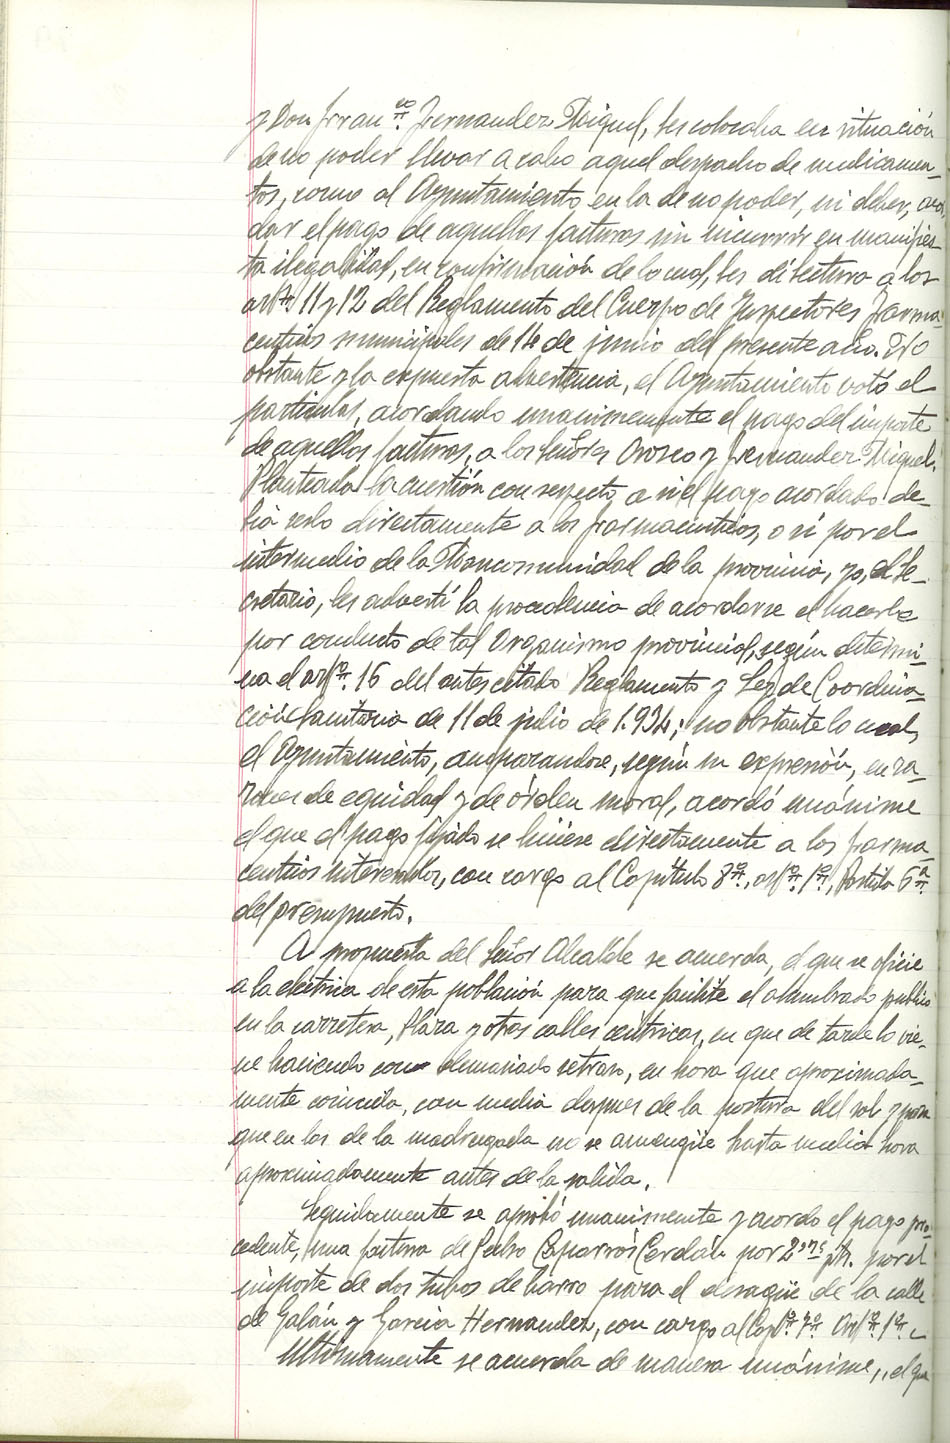 y Don Fran.co Fernandez Miguel, les colocaba en situación
de no poder llevar a cabo aquel despacho de medicamen-
tos, como al Ayuntamiento en la de no poder, ni deber, acor
dar el pago de aquellas facturas sin incurrir en manifies-
ta ilegalidad, en confirmación de lo cual, les di lectura a los
artos. 11 y 12 del Reglamento del Cuerpo de Inspectores Farma-
ceuticos municipales de 14 de junio del presente año. No
obstante y la expuesta advertencia, el Ayuntamiento votó el
particular, acordando unanimemente el pago del importe
de aquellas facturas, a los Señores Orosco y Fernandez Miguel.
Planteada la cuestión con respecto a si el pago acordado de-
bia serlo directamente a los farmaceuticos, o si por el
intermedio de la Mancomunidad de la provincia, yo, el Se-
cretario, les advertí la procedencia de acordarse el hacerlo
por conducto de tal Organismo provincial, según determi-
na el arto. 16 del antes citado Reglamento y Ley de Coordina-
ción Sanitaria de 11 de julio de 1.934; no obstante lo cual,
el Ayuntamiento, amparandose, según su expresión, en ra-
zones de equidad y de órden moral, acordó unánime
el que el pago fijado se hiciese directamente a los farma-
ceuticos interesados, con cargo al Capítulo 8º., arto. 1º., Partida 6ª.
del presupuesto.
A propuesta del Señor Alcalde se acuerda, el que se oficie
a la electrica de esta población para que facilite el alumbrado publico
en la carretera, Plaza y otras calles centricas, en que de tarde lo vie-
ne haciendo con demasiado retraso, en hora que aproximada-
mente coincida, con media despues de la postura del sol y para
que en las de la madrugada no se amengüe hasta media hora
aproximadamente antes de la salida.
Seguidamente se aprobó unanimemente y acordo el pago pro-
cedente, una factura de Pedro Caparrós Cerdán por pts. por el
importe de dos tubos de barro para el desagüe de la calle
de Galán y Garcia Hernandez, con cargo al Capto. 7º. Arto. 1º.
Ultimamente se acuerda de manera unánime, el que